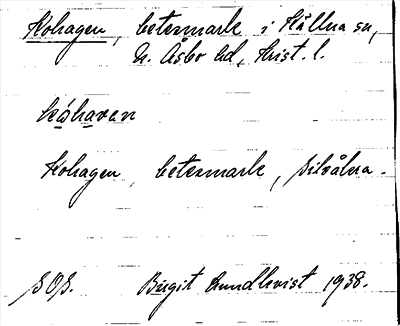 Kohagen, betesmark i Källna sn,
N. Åsbo hd, Krist. l.
kóhaven
Kohagen, betesmark,
SOS. Birgit Lundkvist 1938.